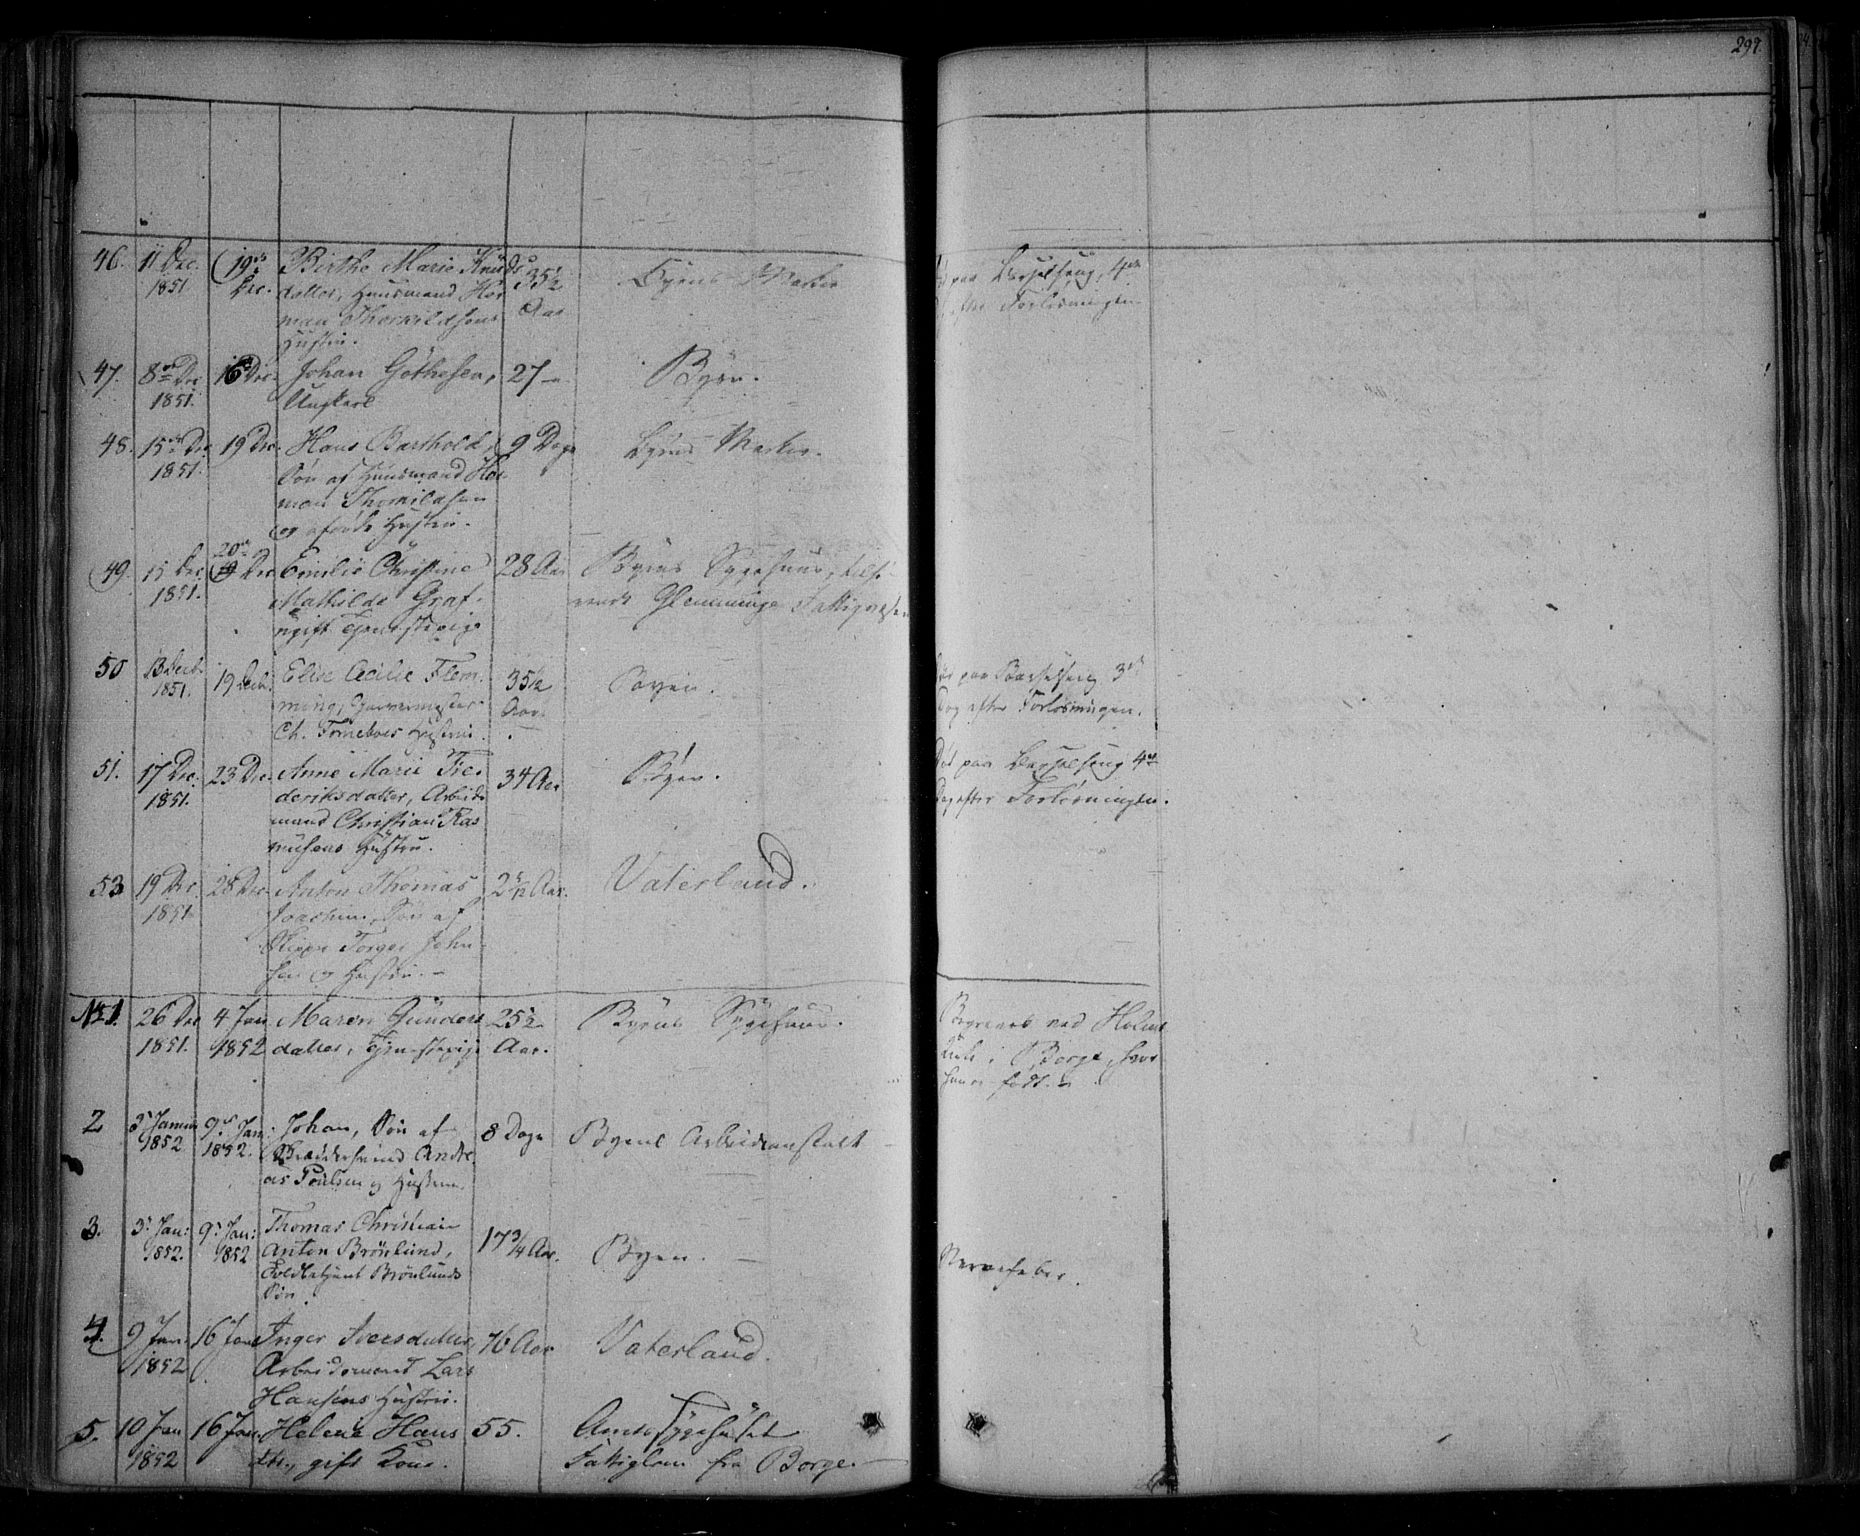 297.
46. 11 Dec. 1851 19de Dec. Birthe Marie Knuds 35½ Aar Byens Marker
datter, Huusmand Her
man Thorkildsens
Hustru.
paa Barselseng, 4de
efter Forløsningen
47. 8de Dec 1851. 16 Dec. Johan Göthesen, 27 — Byen.
Ungkarl
48. 15de Dec 1851. 19 Dec. Hans Barthold, 9 Dage Byens Marker.
Søn af Huusmand Her
man Thorkildsen
og Hustru.
49. 15 Dec. 1851. 20de Dec Emilie Christine 28 Aar Byens Sygehuus, tilhø
Mathilde Graf, rende Glemminge Fattigvæsen
ugift Tjenestepige
50 13 Decbr. 1851. 19 Decbr. Elise Cecilie Flem 35½ Aar. Byen.
ming, Garvermester
Ch. Torneboes Hustru.
paa Barselseng 3de
Dag efter Forløsningen.
51. 17 Dec. 1851. 23 Dec. Anne Marie Fre 34 Aar Byen.
deriksdatter, Arbeids
mand Christian Ras
musens Hustru.
Død paa Barselseng 4de
Dag efter Forløsningen.
53 19 Dec. 1851 28 Dec. Anton Thomas 2 Aar. Vaterland.
Joachim, Søn af
Skipper Torger John
sen og Hustru. —
No 1. 26 Dec 1851. 4 Jan 1852 Maren Gunders 25½ Aar. Byens Sygehuus.
datter, Tjenestepige
Begravet ved Holms
Kirke i Borge, hvor
hun er født. —
2 3 Januar 1852 9de Jan: 1852. Johan, Søn af 8 Dage Byens Arbeidsanstalt
Andre
as Poulsen og Hustru.
3. 3 Jan: 1852. 9 Jan: 1852 Thomas Christian 17¾ Aar. Byen. —
Anton Brönlund,
Toldbetjent Brönlunds
Søn.
Nervefeber.
4. 9 Jan. 1852 16 Jan Inger Iversdatter, 76 Aar Vaterland.
Arbeidsmand Lars
Hansens Hustru.
5. 10 Jan 1852 16 Jan. Helene Hans 55. Amtssygehuset
dtr., gift Kone. Fattiglem fra Borge. —